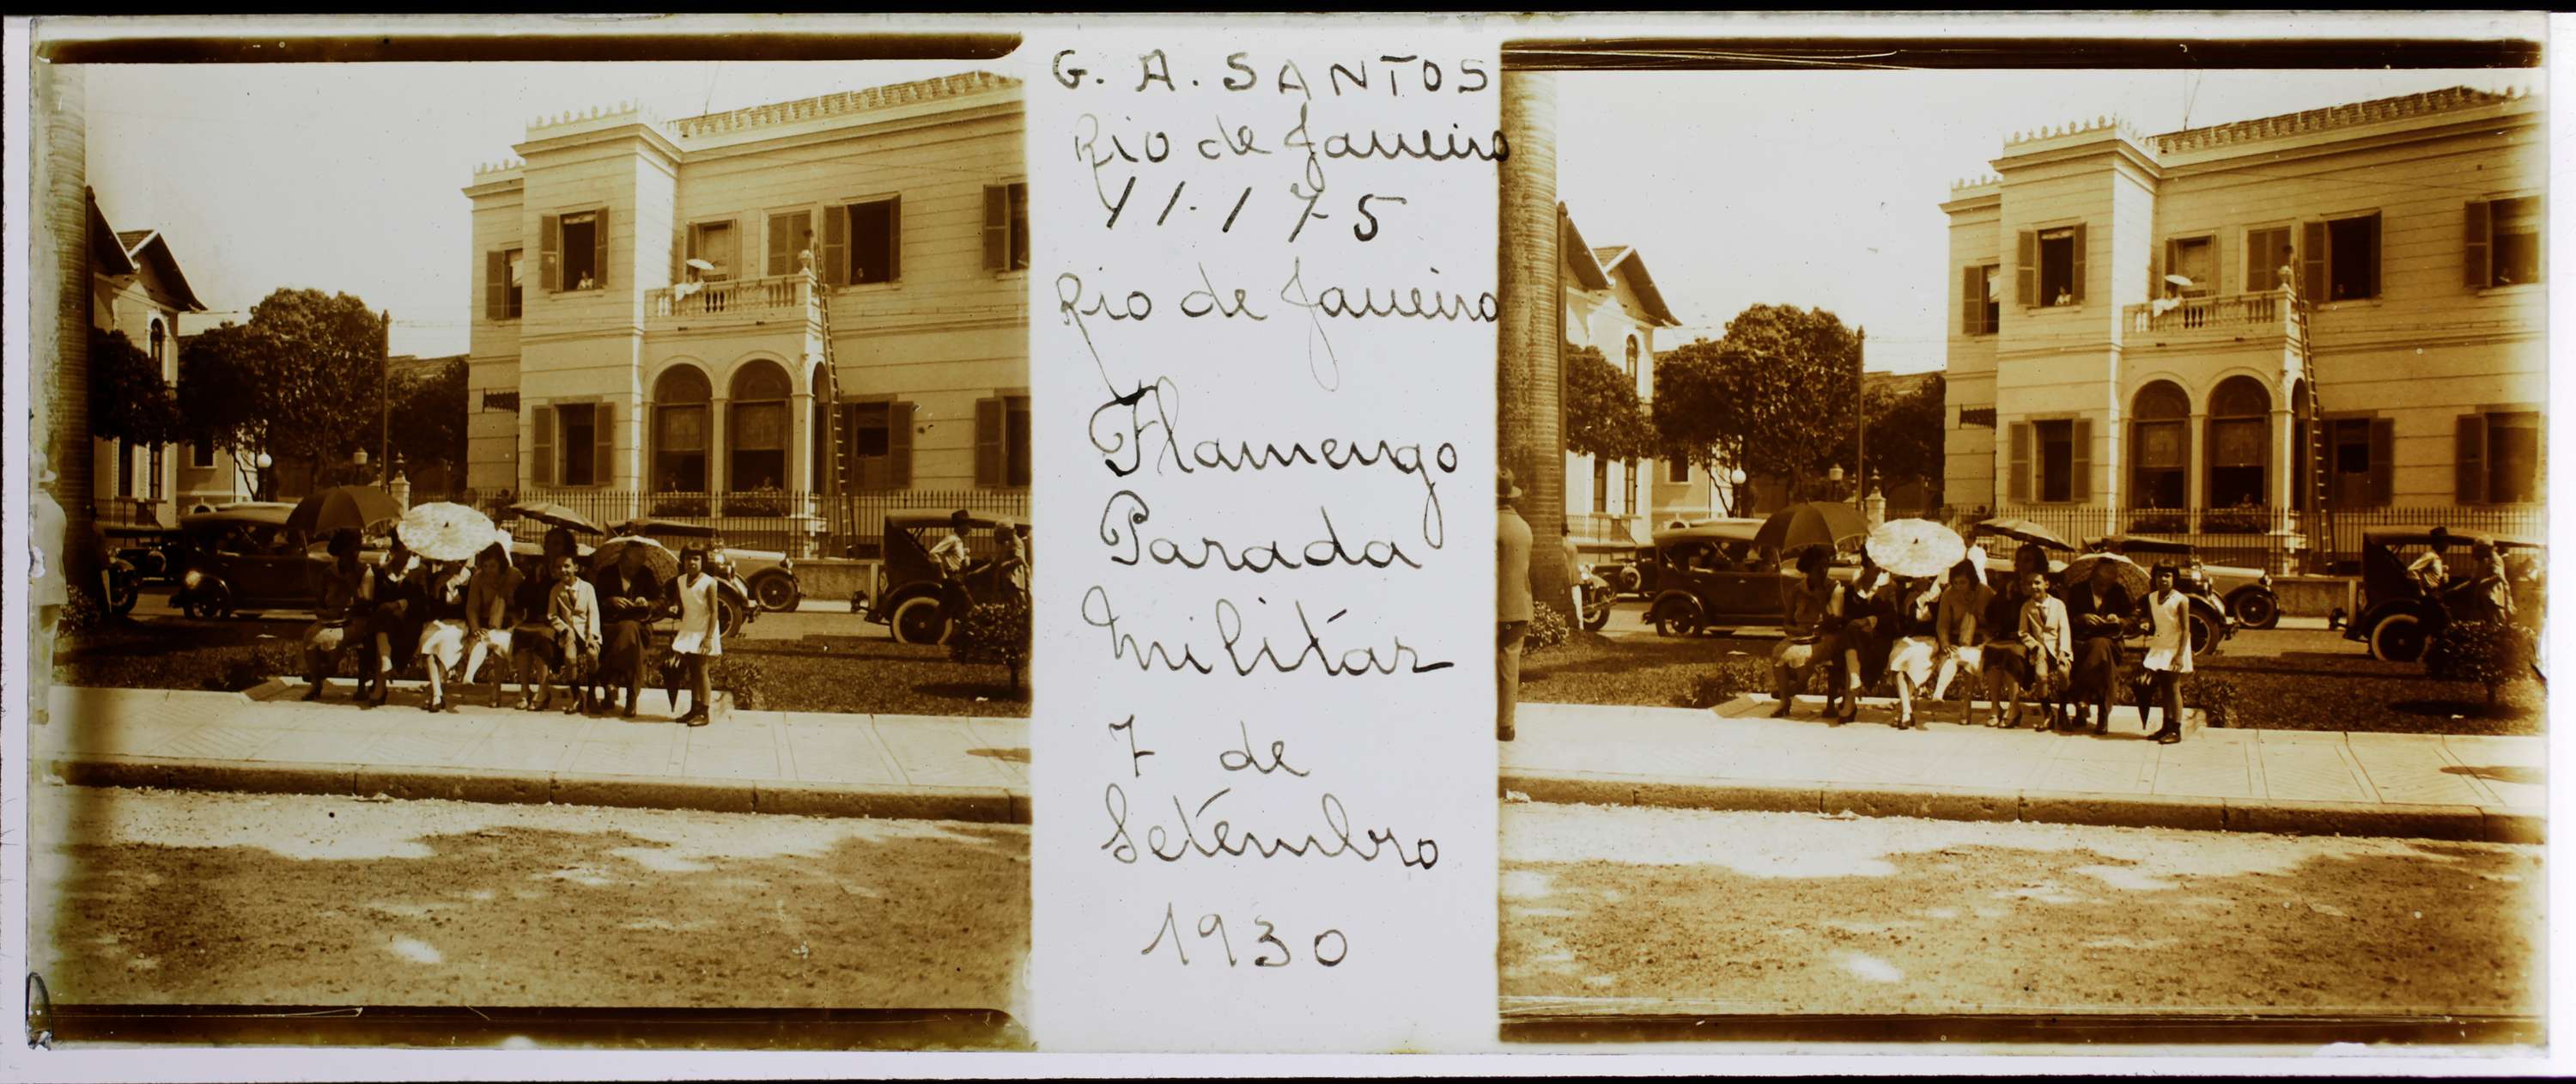 G. A. SANTOS
Rio de Janeiro
11.175
Rio de Janeiro
Flamengo
Parada
Militar
7 de
Setembro
1930